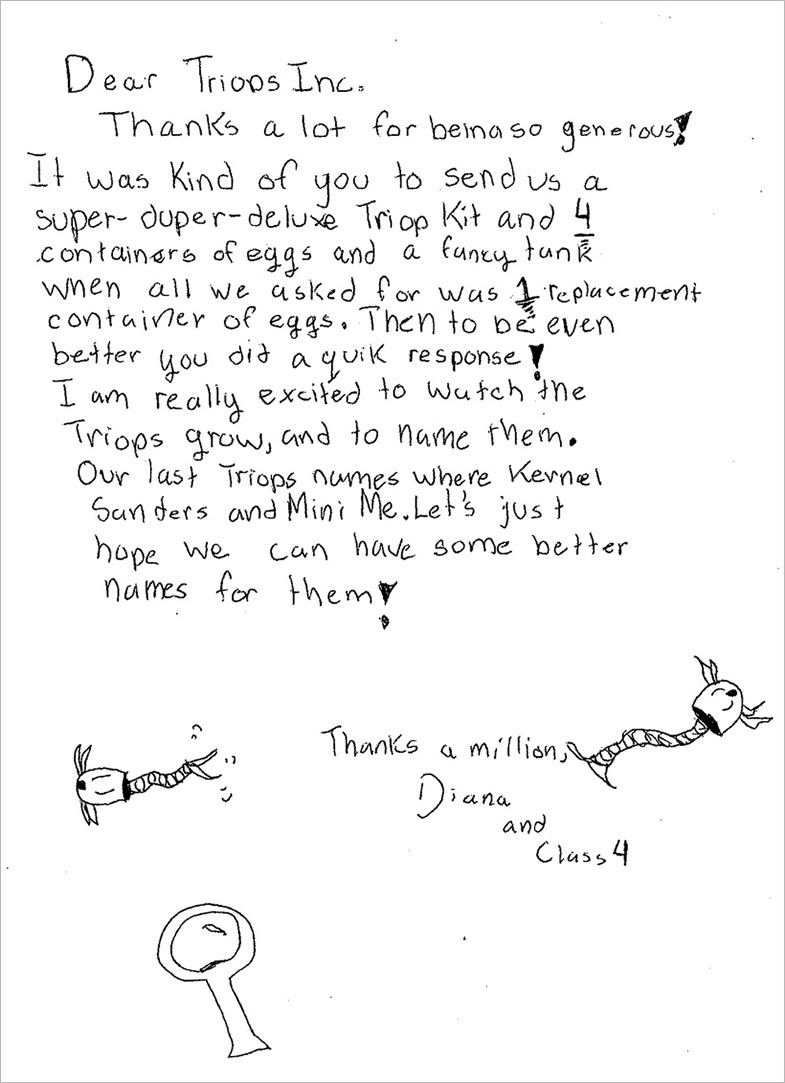 Dear Triops Inc.
Thanks a lot for being so generous!
It was kind of you to send us a
super-duper-deluxe Triop Kit and 4
containers of eggs and a fancy tank
when all we asked for was 1 replacement
container of eggs. Then to be even
better you did a quik response!
I am really excited to watch the
Triops grow, and to name them.
Our last Triops names where Kernel
Sanders and Mini Me. Let's just
hope we can have some better
names for them!
Thanks a million,
Diana
and
Class 4